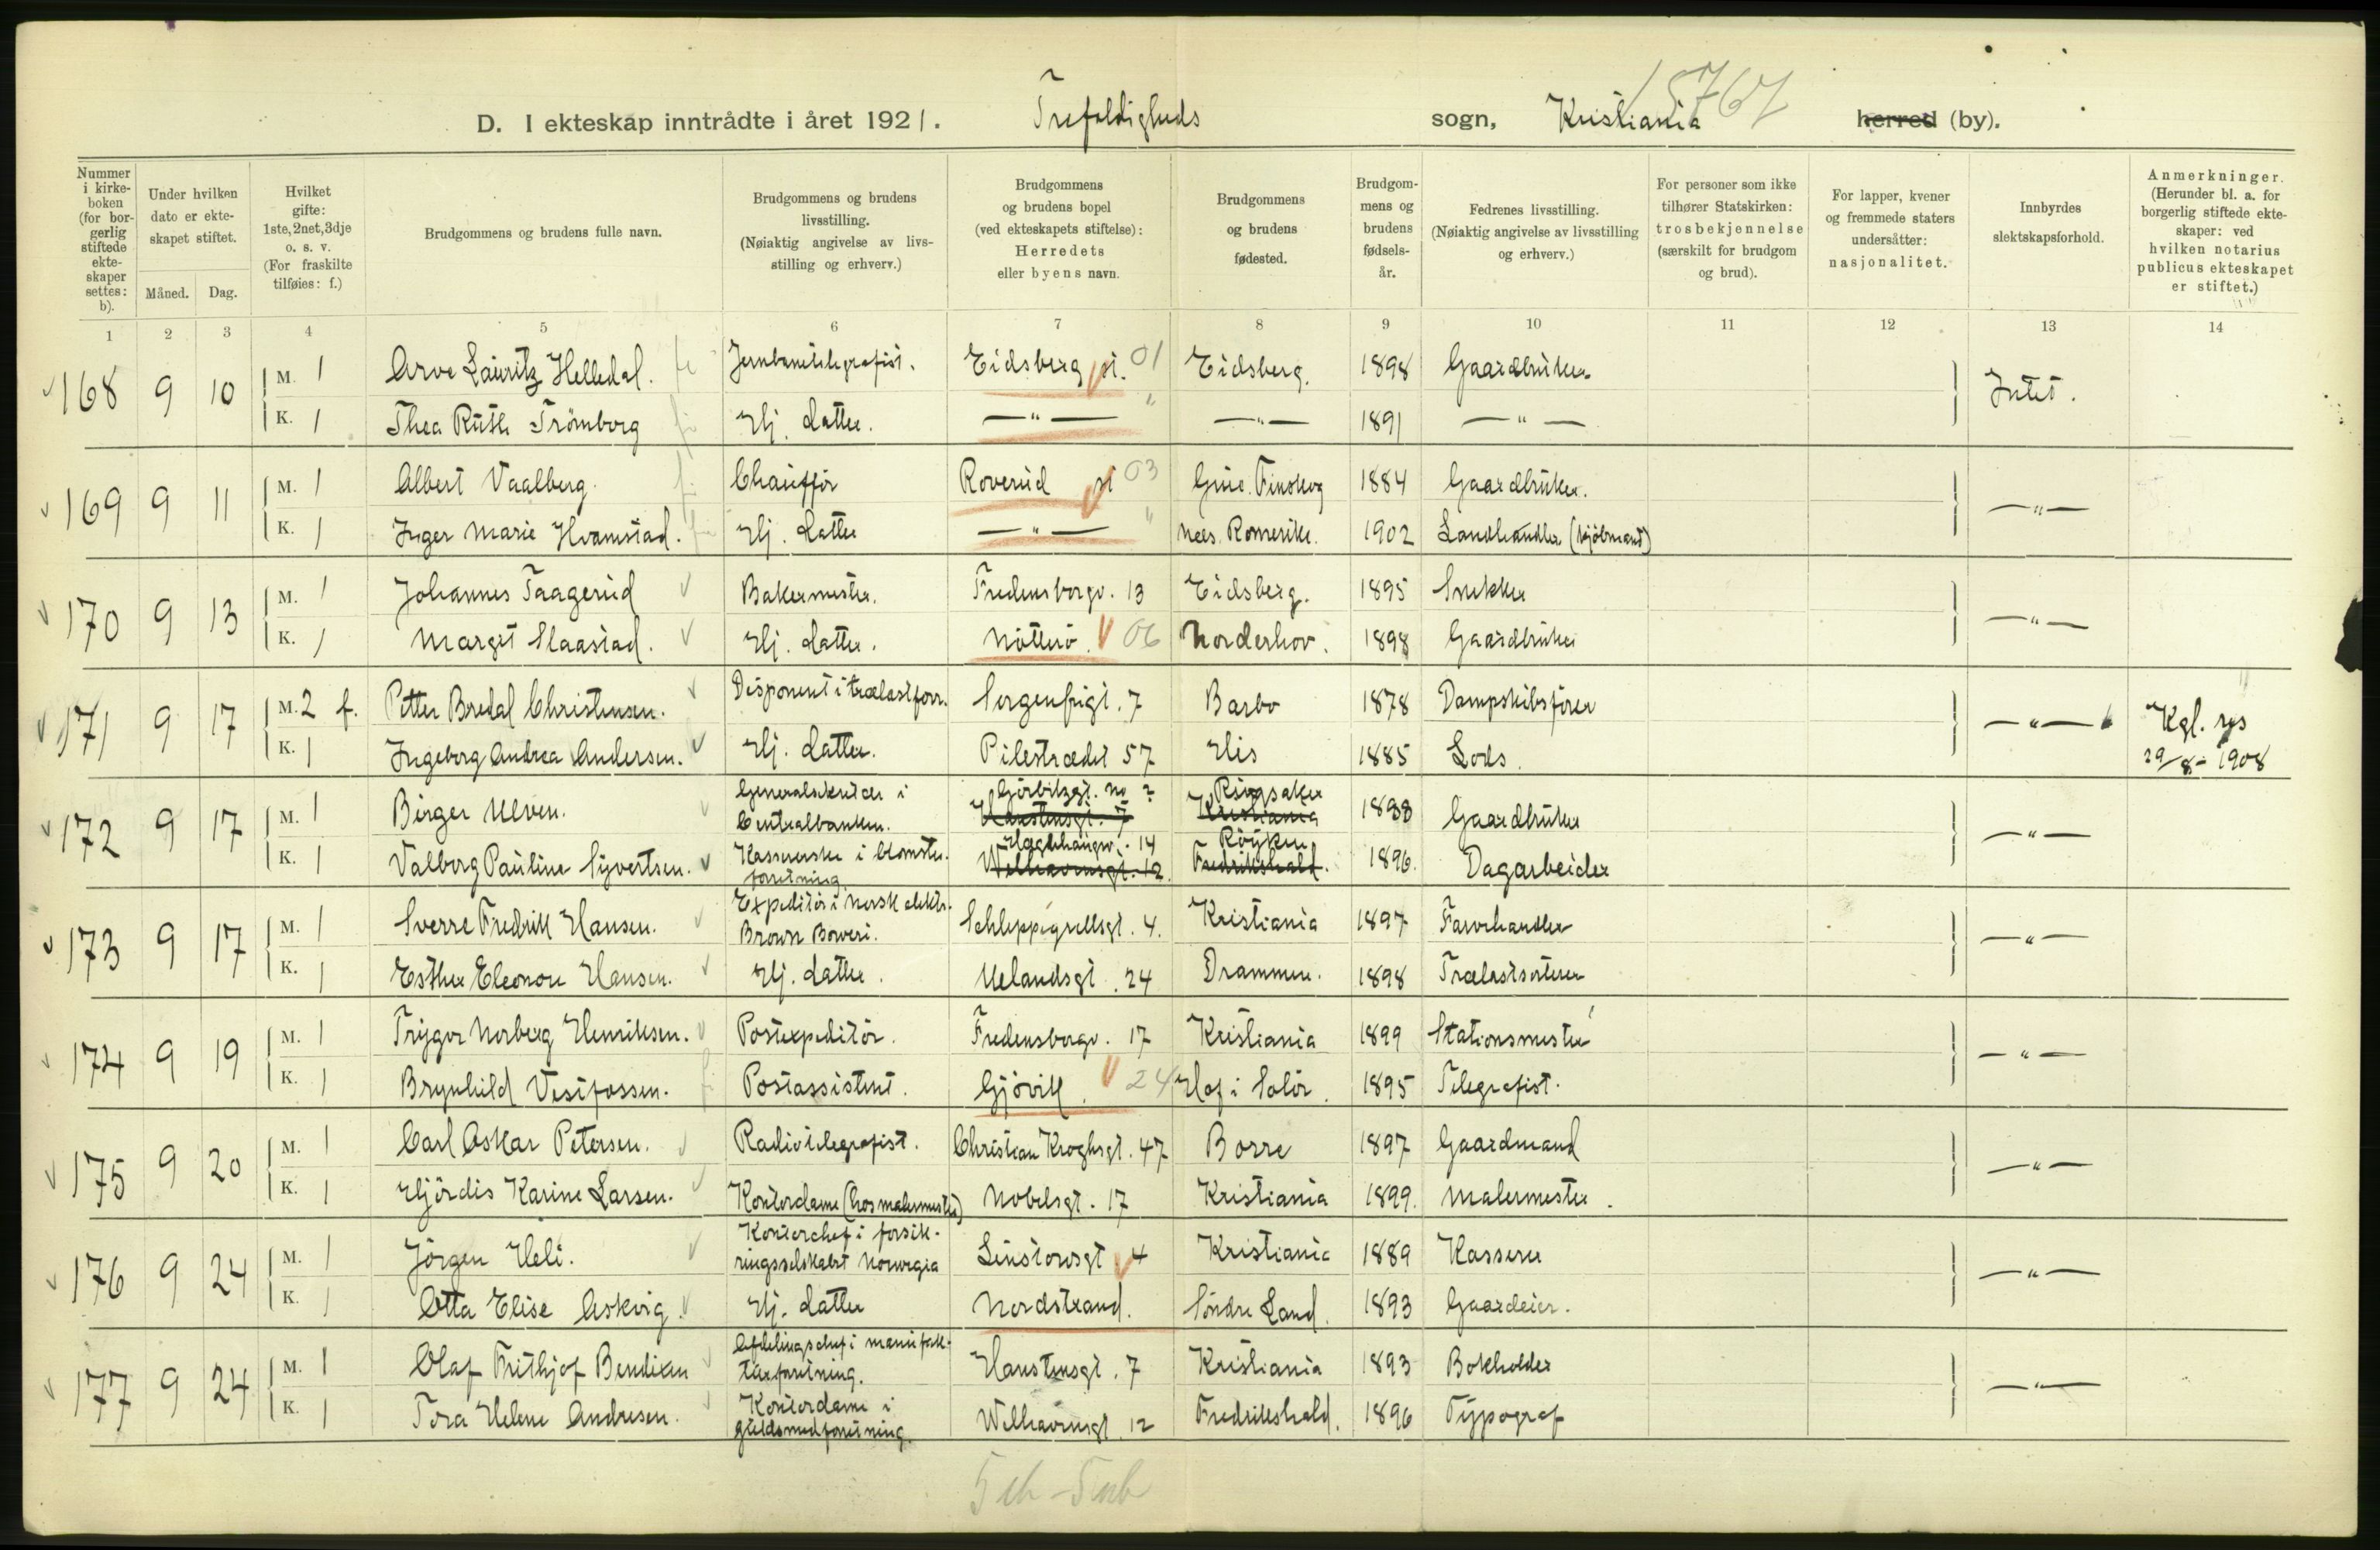 D. I ekteskap inntrådte i året 1921. Trefoldigheds sogn, Kristiania herred (by).
15767
Nummer i kirkeboken (for borgerlig stiftede ekteskaper settes: b).
Under hvilken dato er ekteskapet stiftet.
Måned. Dag.
Hvilket gifte: 1ste, 2net, 3dje o. s. v. (For fraskilte tilføies: f.)
Brudgommens og brudens fulle navn.
Brudgommens og brudens livsstilling. (Nøiaktig angivelse av livsstilling og erhverv.)
Brudgommens og brudens bopel (ved ekteskapets stiftelse): Herredets eller byens navn.
Brudgommens og brudens fødested.
Brudgommens og brudens fødselsår.
Fedrenes livsstilling. (Nøiaktig angivelse av livsstilling og erhverv.)
For personer som ikke tilhører Statskirken: trosbekjennelse (særskilt for brudgom og brud).
For lapper, kvener og fremmede staters undersåtter: nasjonalitet.
Innbyrdes slektskapsforhold.
Anmerkninger. (Herunder bl. a. for borgerlig stiftede ekteskaper: ved hvilken notarius publicus ekteskapet er stiftet.)
1 2 3 4 5 6 7 8 9 10 11 12 13 14
168 9 10 M. 1 Arve Lauritz Helledal. Jernbanetelegrafist. Eidsberg st. 01 Eidsberg. 1898 Gaardbruker Intet.
K. 1 Thea Ruth Trömborg Hj. datter. — " — " — " — 1891 — " —
169 9 11 M. 1 Albert Vaalberg. Chauffør Roverud st 03 Grue Finskog 1884 Gaardbruker. — " —
K. 1 Inger Marie Hvamstad. Hj. datter — " — " Nees. Romerike. 1902 Landhandler (kjöbmand)
170 9 13 M. 1 Johannes Taagerud Bakermester. Fredensborgv. 13 Eidsberg. 1895 Snekker — " —
K. 1 Margit Slaastad. Hj. datter. Nötterö. 06 Norderhov. 1898 Gaardbruker
171 9 17 M. 2 f. Petter Bredal Christensen. Disponent i trælastforr. Sorgenfrigt. 7 Barbo 1878 Dampskibsfører — " — Kgl. res
K. 1 Ingeborg Andrea Andersen. Hj. datter. Pilestrædet 57 His 1885 Lods. 29/8 - 1908
172 9 17 M. 1 Birger Ulven. Generalsekretær i Centralbanken. Görbitzgt. no 2 Haustensgt. 7 Ringsaker Kristiania 1888 Gaardbruker — " —
K. 1 Valborg Pauline Syvertsen. Kassererske i blomsterforretning Hægdehaugsv. 14 Welhavensgt. 12. Röyken Fredrikshald. 1896. Dagarbeider
173 9 17 M. 1 Sverre Fredrik Hansen. Expeditör i norsk elektr. Brown Boweri. Schleppegrellsgt. 4. Kristiania 1897 Farvehandler — " —
K. 1 Esther Eleonore Hansen. Hj. datter. Uelandsgt. 24 Drammen. 1898 Trælastsorterer
174 9 19 M. 1 Trygve Norberg Henriksen. Postexpeditör. Fredensborgv. 17 Kristiania 1899 Stationsmester — " —
K. 1 Brynhild Vestfossen. Postassistent. Gjövik. 24 Hof i Solör. 1895 Telegrafist.
175 9 20 M. 1 Carl Oskar Petersen. Radiotelegrafist. Christian Kroghsgt. 47 Borre 1897 Gaardmand — " —
K. 1 Hjördis Karine Larsen. Kontordame (hos malermester) Nobelsgt. 17 Kristiania 1899. Malermester.
176 9 24 M. 1 Jörgen Heli. Kontorchef i forsikringsselskabet Norwegia Linstowsgt 4 Kristiania 1889 Kasserer — " —
K. 1 Otta Elise Askvig. Hj. datter Nordstrand. Söndre Land. 1893 Gaardeier.
177 9 24 M. 1 Olaf Frithjof Bendixen Afdelingschef i manufakturforretning. Haustensgt. 7 Kristiania 1893 Bokholder — " —
K. 1 Tora Helene Andresen. Kontordame i guldsmedforretning. Welhavensgt. 12 Fredrikshald. 1896 Typograf